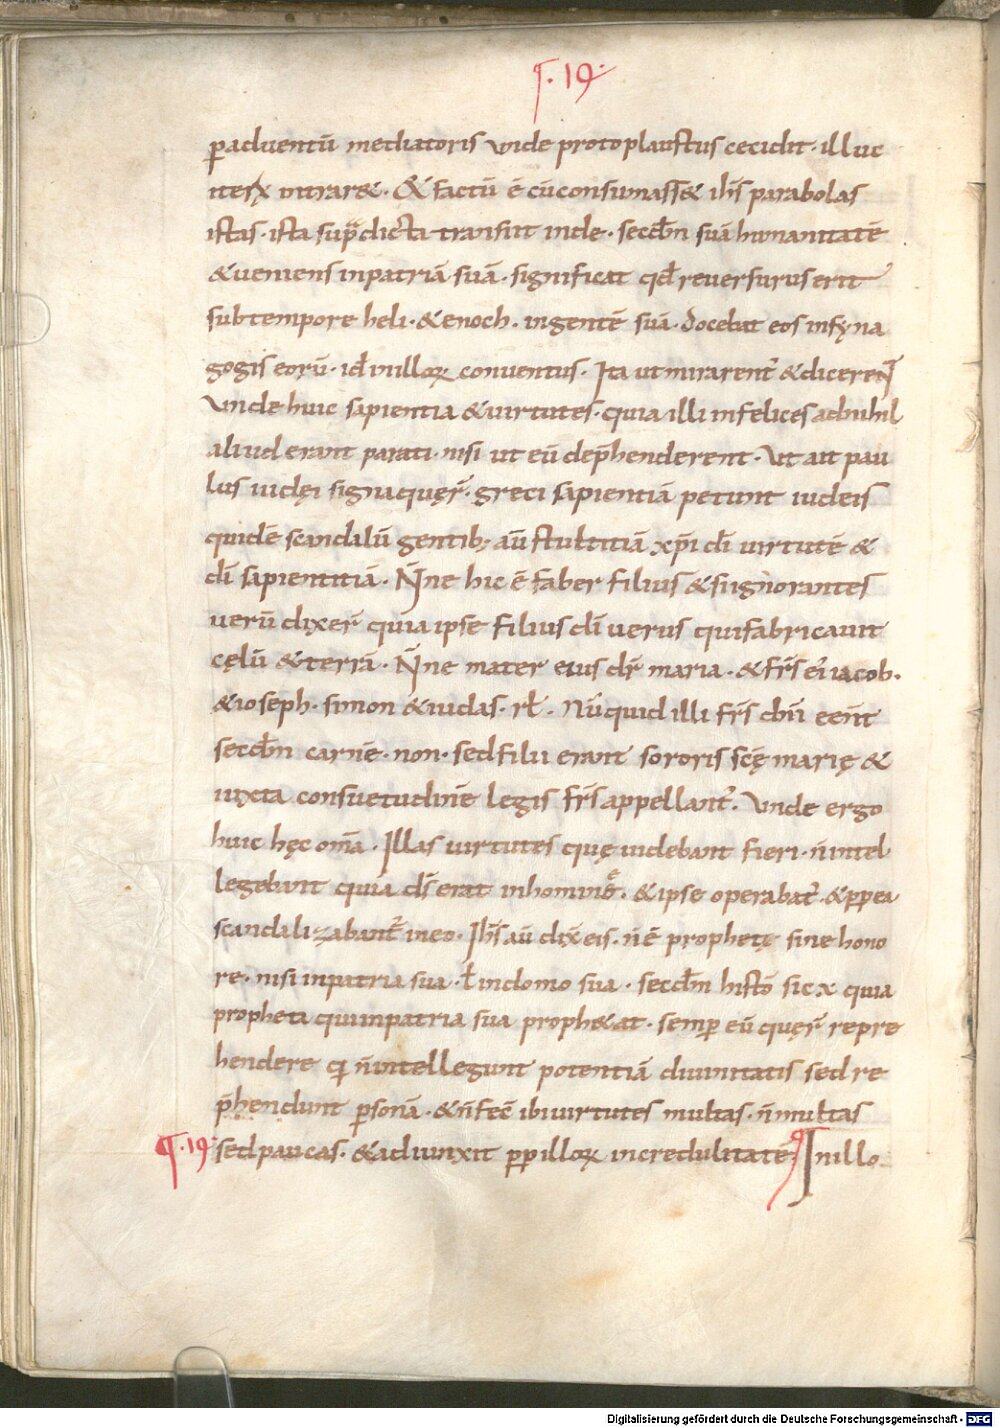 ¶. 19.
ꝑ aduentū mediatoris vnde protoplaustus cecidit· illuc
iteꝝ intrar&. & factū ē cū consūmass& ih̅s parabolas
istas· ista sup̄dicta transiit inde· secd̅m suā humanitatē
& ueniens inpatriā suā· significat qd̄ reuersurus erit
sub tempore heli· & enoch· ingentē suā· docebat eos insyna
gogis eorū· id inilloꝝ conuentus· Ita ut mirarent᷑ & diceren̄
Vnde huic sapientia & uirtutes· quia illi infelices adnihil
aliud erant parati· nisi ut eū dep̄henderent· Vt ait pau
lus iudęi signa quęr̄· greci sapientiā petunt iudeis
quidē scandalū gentib; aū stultitiā xp̄i dī uirtutē &
dī sapientitiā· N̄ne hic ē faber filius & si ignorantes
uerū dixer̄ quia ipse filius dī uerus qui fabricauit
cęlū & terrā· N̄ne mater eius dr̄ maria· & fr̄s ei᷒ iacob·
& ioseph· simon & iudas· rł· Nūquid illi fr̄s dn̄i een̄t
secd̅m carnē· non· sed filii erant sororis scę̄ marię &
iuxta consuetudinē legis fr̄s appellant᷑· Vnde ergo
huic hęc om̄a· Illas uirtutes quę uidebant fieri· n̄ intel
legebant quia ds̄ erat in homine· & ipse operabat᷑· & ꝓpea
scandalizabant᷑ in eo· Ih̅s aū dix̄ eis· n̄ ē prophetę sine hono
re· nisi inpatria sua· ł in domo sua· secd̅m histō sic x quia
propheta qui inpatria sua proph&at· semꝑ eū quęr̄ repre
hendere qi n̄ intellegunt potentiā diuinitatis sed re
p̄hendunt ꝑsonā· & n̄ fec̄ ibi uirtutes multas· n̄ multas
¶. 19. sed paucas· & adiunxit ꝓp illoꝝ incredulitatē In illo
Digitalisierung gefördert durch die Deutsche Forschungsgemeinschaft - DFG